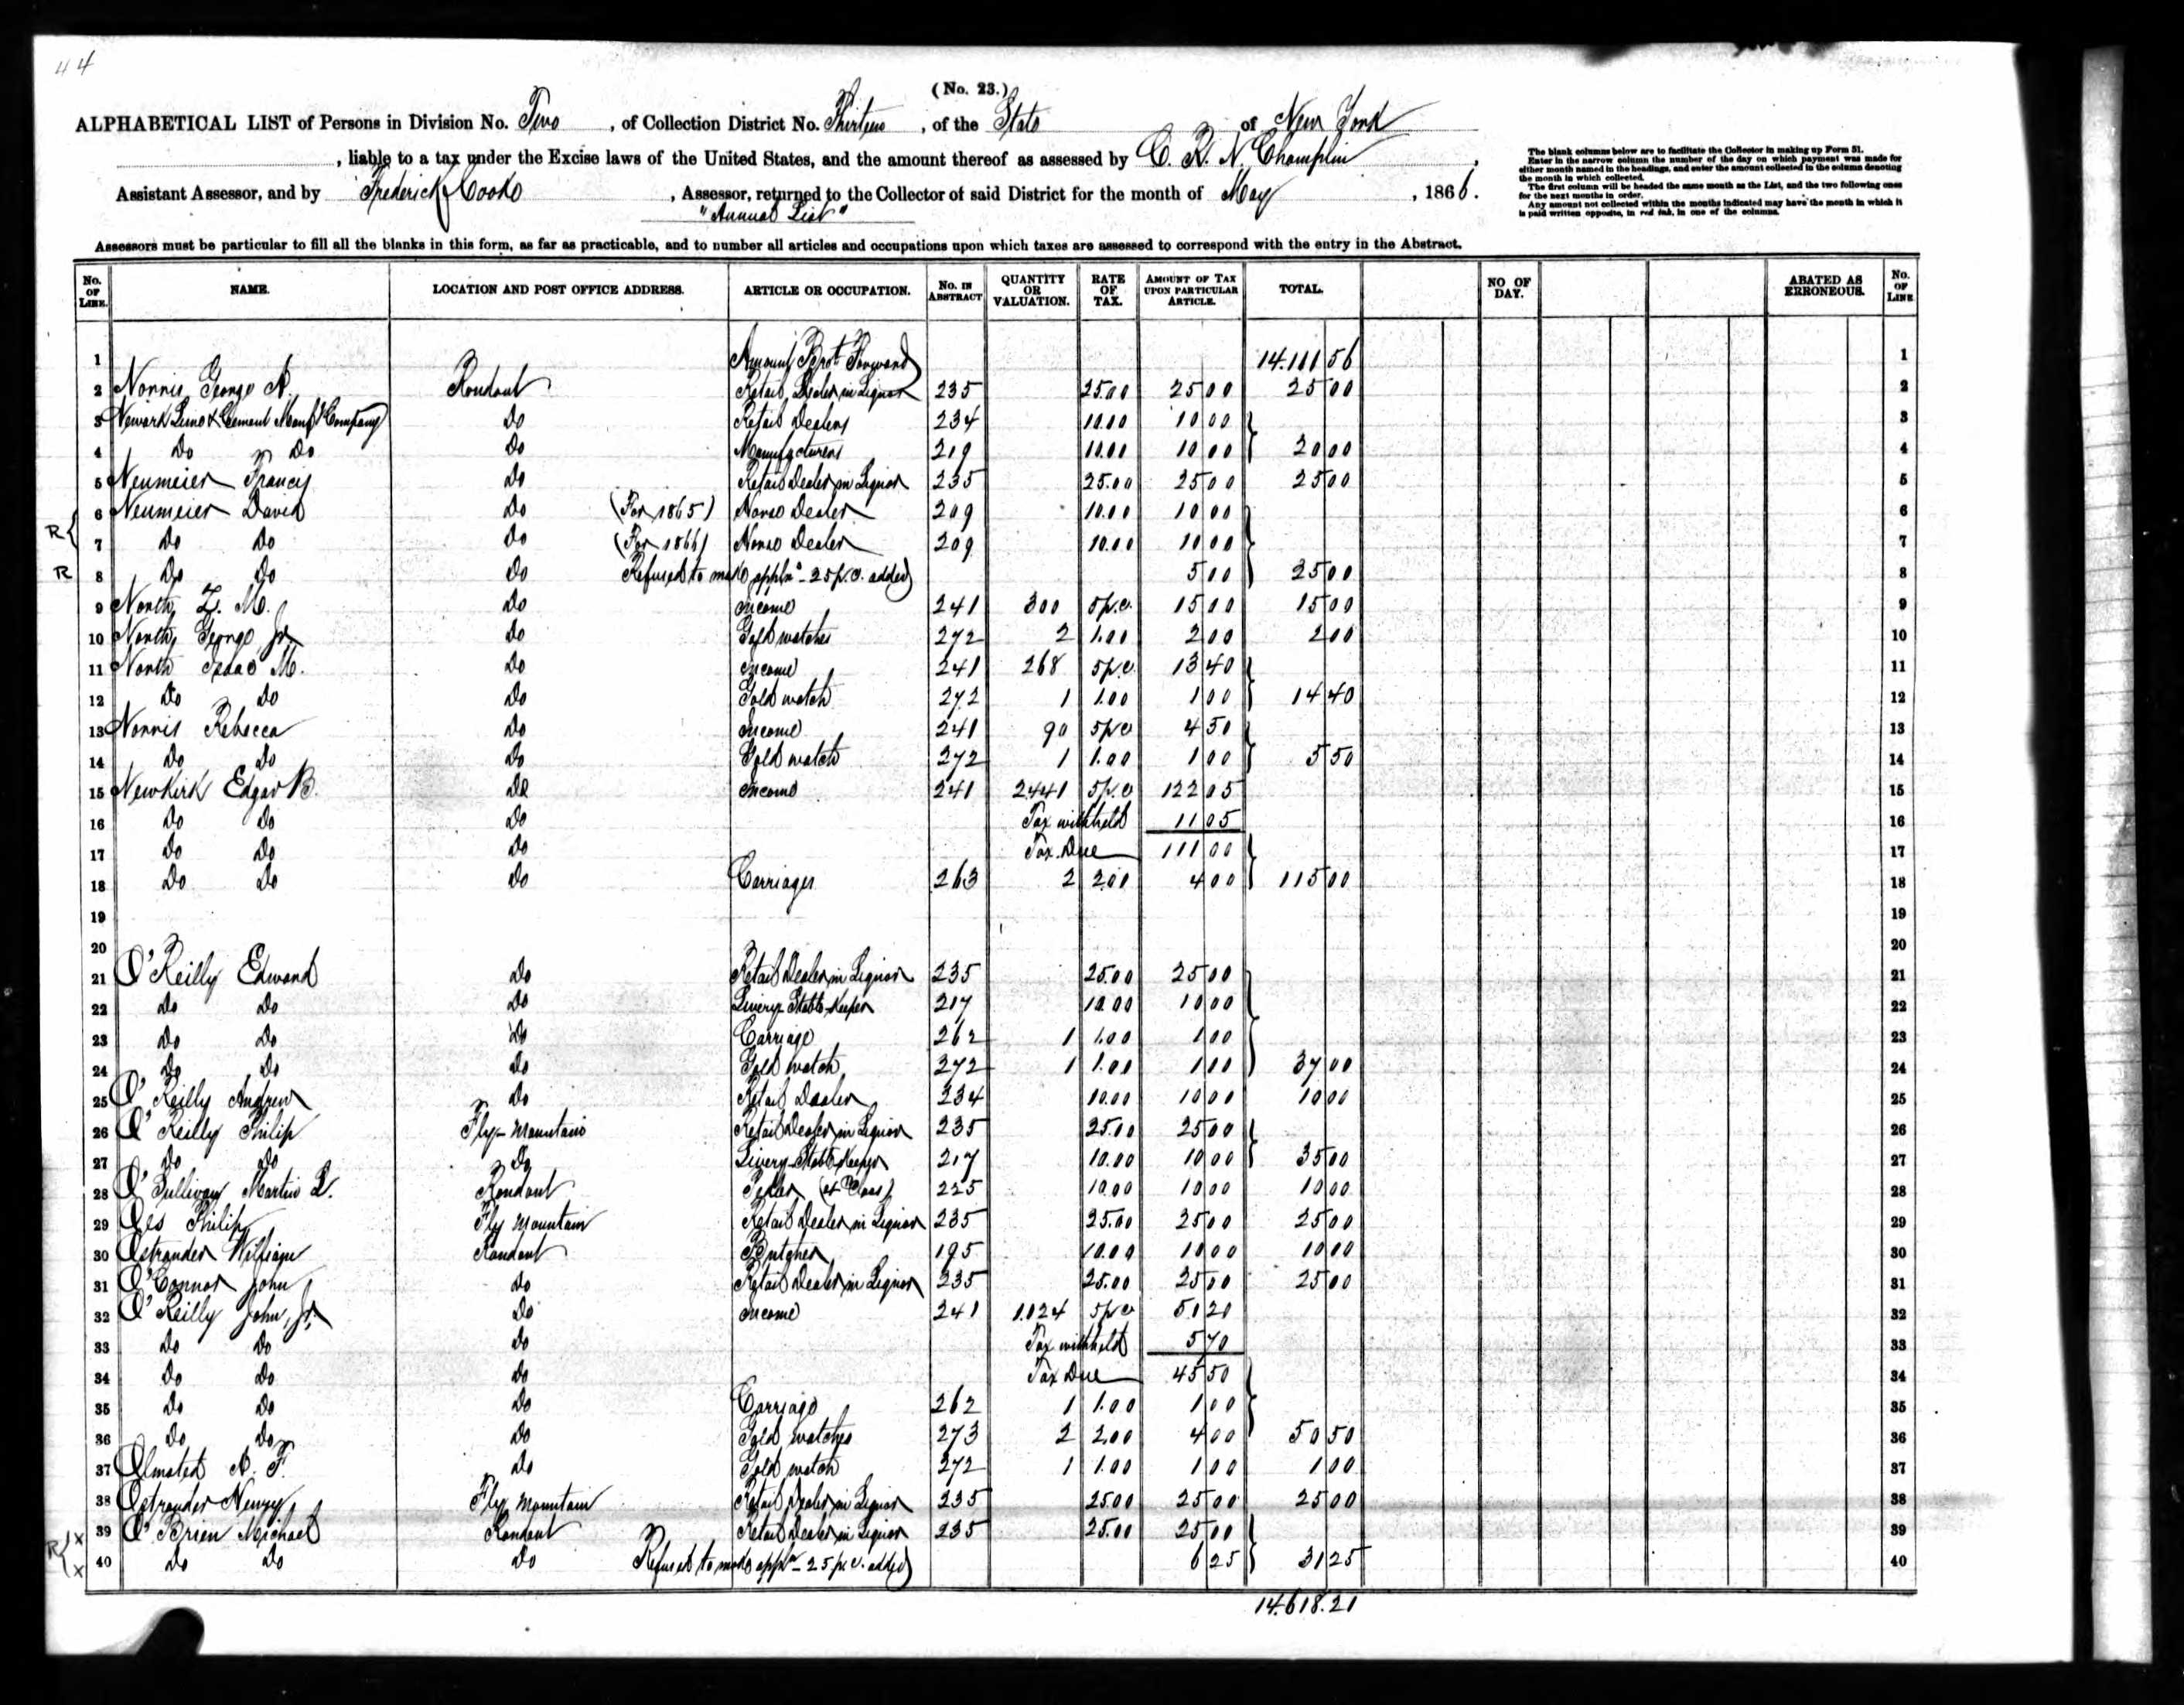 44
(No. 23.)
ALPHABETICAL LIST of Persons in Division No. Two, of Collection District No. Thirteen, of the State of New York
, liable to a tax under the Excise laws of the United States, and the amount thereof as assessed by C. R. N. Champlin,
Assistant Assessor, and by Frederick Cooke, Assessor, returned to the Collector of said District for the month of May, 1866.
"Annual List"
The blank columns below are to facilitate the Collector in making up Form 51.
Enter in the narrow column the number of the day on which payment was made for
either month named in the headings, and enter the amount collected in the column denoting
the month in which collected.
The first column will be headed the same month as the List, and the two following ones
for the next months in order.
Any amount not collected within the months indicated may have the month in which it
is paid written opposite, in red ink, in one of the columns.
Assessors must be particular to fill all the blanks in this form, as far as practicable, and to number all articles and occupations upon which taxes are assessed to correspond with the entry in the Abstract.
No. OF LINE. NAME. LOCATION AND POST OFFICE ADDRESS. ARTICLE OR OCCUPATION. No. IN ABSTRACT QUANTITY OR VALUATION. RATE OF TAX. AMOUNT OF TAX UPON PARTICULAR ARTICLE. TOTAL. NO OF DAY. ABATED AS ERRONEOUS. No. OF LINE
1 Amount Brot Forward 14.111 56 1
2 Norris George N. Rondout Retail Dealer in Liquor 235 25.00 25 00 25 00 2
3 Newark Lime & Cement Manf Company Do Retail Dealers 234 10.00 10 00 3
4 Do Do Do Manufacturers 219 10.00 10 00 20 00 4
5 Neumeier Francis Do Retail Dealer in Liquor 235 25.00 25 00 25 00 5
R 6 Neumeier David Do (For 1865) Horse Dealer 209 10.00 10 00 6
7 Do Do Do (For 1866) Horse Dealer 209 10.00 10 00 7
R 8 Do Do Do Refused to make appln - 25 p.c. added) 5 00 25 00 8
9 North, F. M. Do Income 241 300 5 p.c. 15 00 15 00 9
10 North, George Jr Do Gold watches 272 2 1.00 2 00 2 00 10
11 North Isaac M. Do Income 241 268 5 p.c 13 40 11
12 Do Do Do Gold watch 272 1 1.00 1 00 14 40 12
13 Norris Rebecca Do Income 241 90 5 p c 4 50 13
14 Do Do Do Gold watch 272 1 1.00 1 00 5 50 14
15 Newkirk Edgar B. Do Income 241 2.441 5 p.c 122 05 15
16 Do Do Do Tax withheld 11 05 16
17 Do Do Do Tax Due 111 00 17
18 Do Do Do Carriages 263 2 2.00 4 00 115 00 18
19 19
20 20
21 O'Reilly Edward Do Retail Dealer in Liquor 235 25.00 25 00 21
22 Do Do Do Livery Stable Keeper 217 10.00 10 00 22
23 Do Do Do Carriage 262 1 1.00 1 00 23
24 Do Do Do Gold watch 272 1 1.00 1 00 37 00 24
25 O' Reilly Andrew Do Retail Dealer 234 10.00 10 00 10 00 25
26 O' Reilly Philip Fly-Mountain Retail Dealer in Liquor 235 25.00 25 00 26
27 Do Do Do Livery Stable Keeper 217 10.00 10 00 35 00 27
28 O' Sullivan Martin L. Rondout Pedler (4th Class) 225 10.00 10 00 10 00 28
29 Oes Philip Fly Mountain Retail Dealer in Liquor 235 25.00 25 00 25 00 29
30 Ostrander William Rondout Butcher 195 10.00 10 00 10 00 30
31 O'Connor John Do Retail Dealer in Liquor 235 25.00 25 00 25 00 31
32 O' Reilly John, Jr. Do Income 241 1.024 5 p c 51 20 32
33 Do Do Do Tax withheld 5 70 33
34 Do Do Do Tax Due 45 50 34
35 Do Do Do Carriage 262 1 1.00 1 00 35
36 Do Do Do Gold watches 273 2 2.00 4 00 50 50 36
37 Olmsted A. F. Do Gold watch 272 1 1.00 1 00 1 00 37
38 Ostrander Henry Fly Mountain Retail Dealer in Liquor 235 25.00 25 00 25 00 38
R x 39 O' Brien Michael Rondout Retail Dealer in Liquor 235 25.00 25 00 39
x 40 Do Do Do Refused to make appln - 25 p.c. added) 6 25 31 25 40
14.618.21